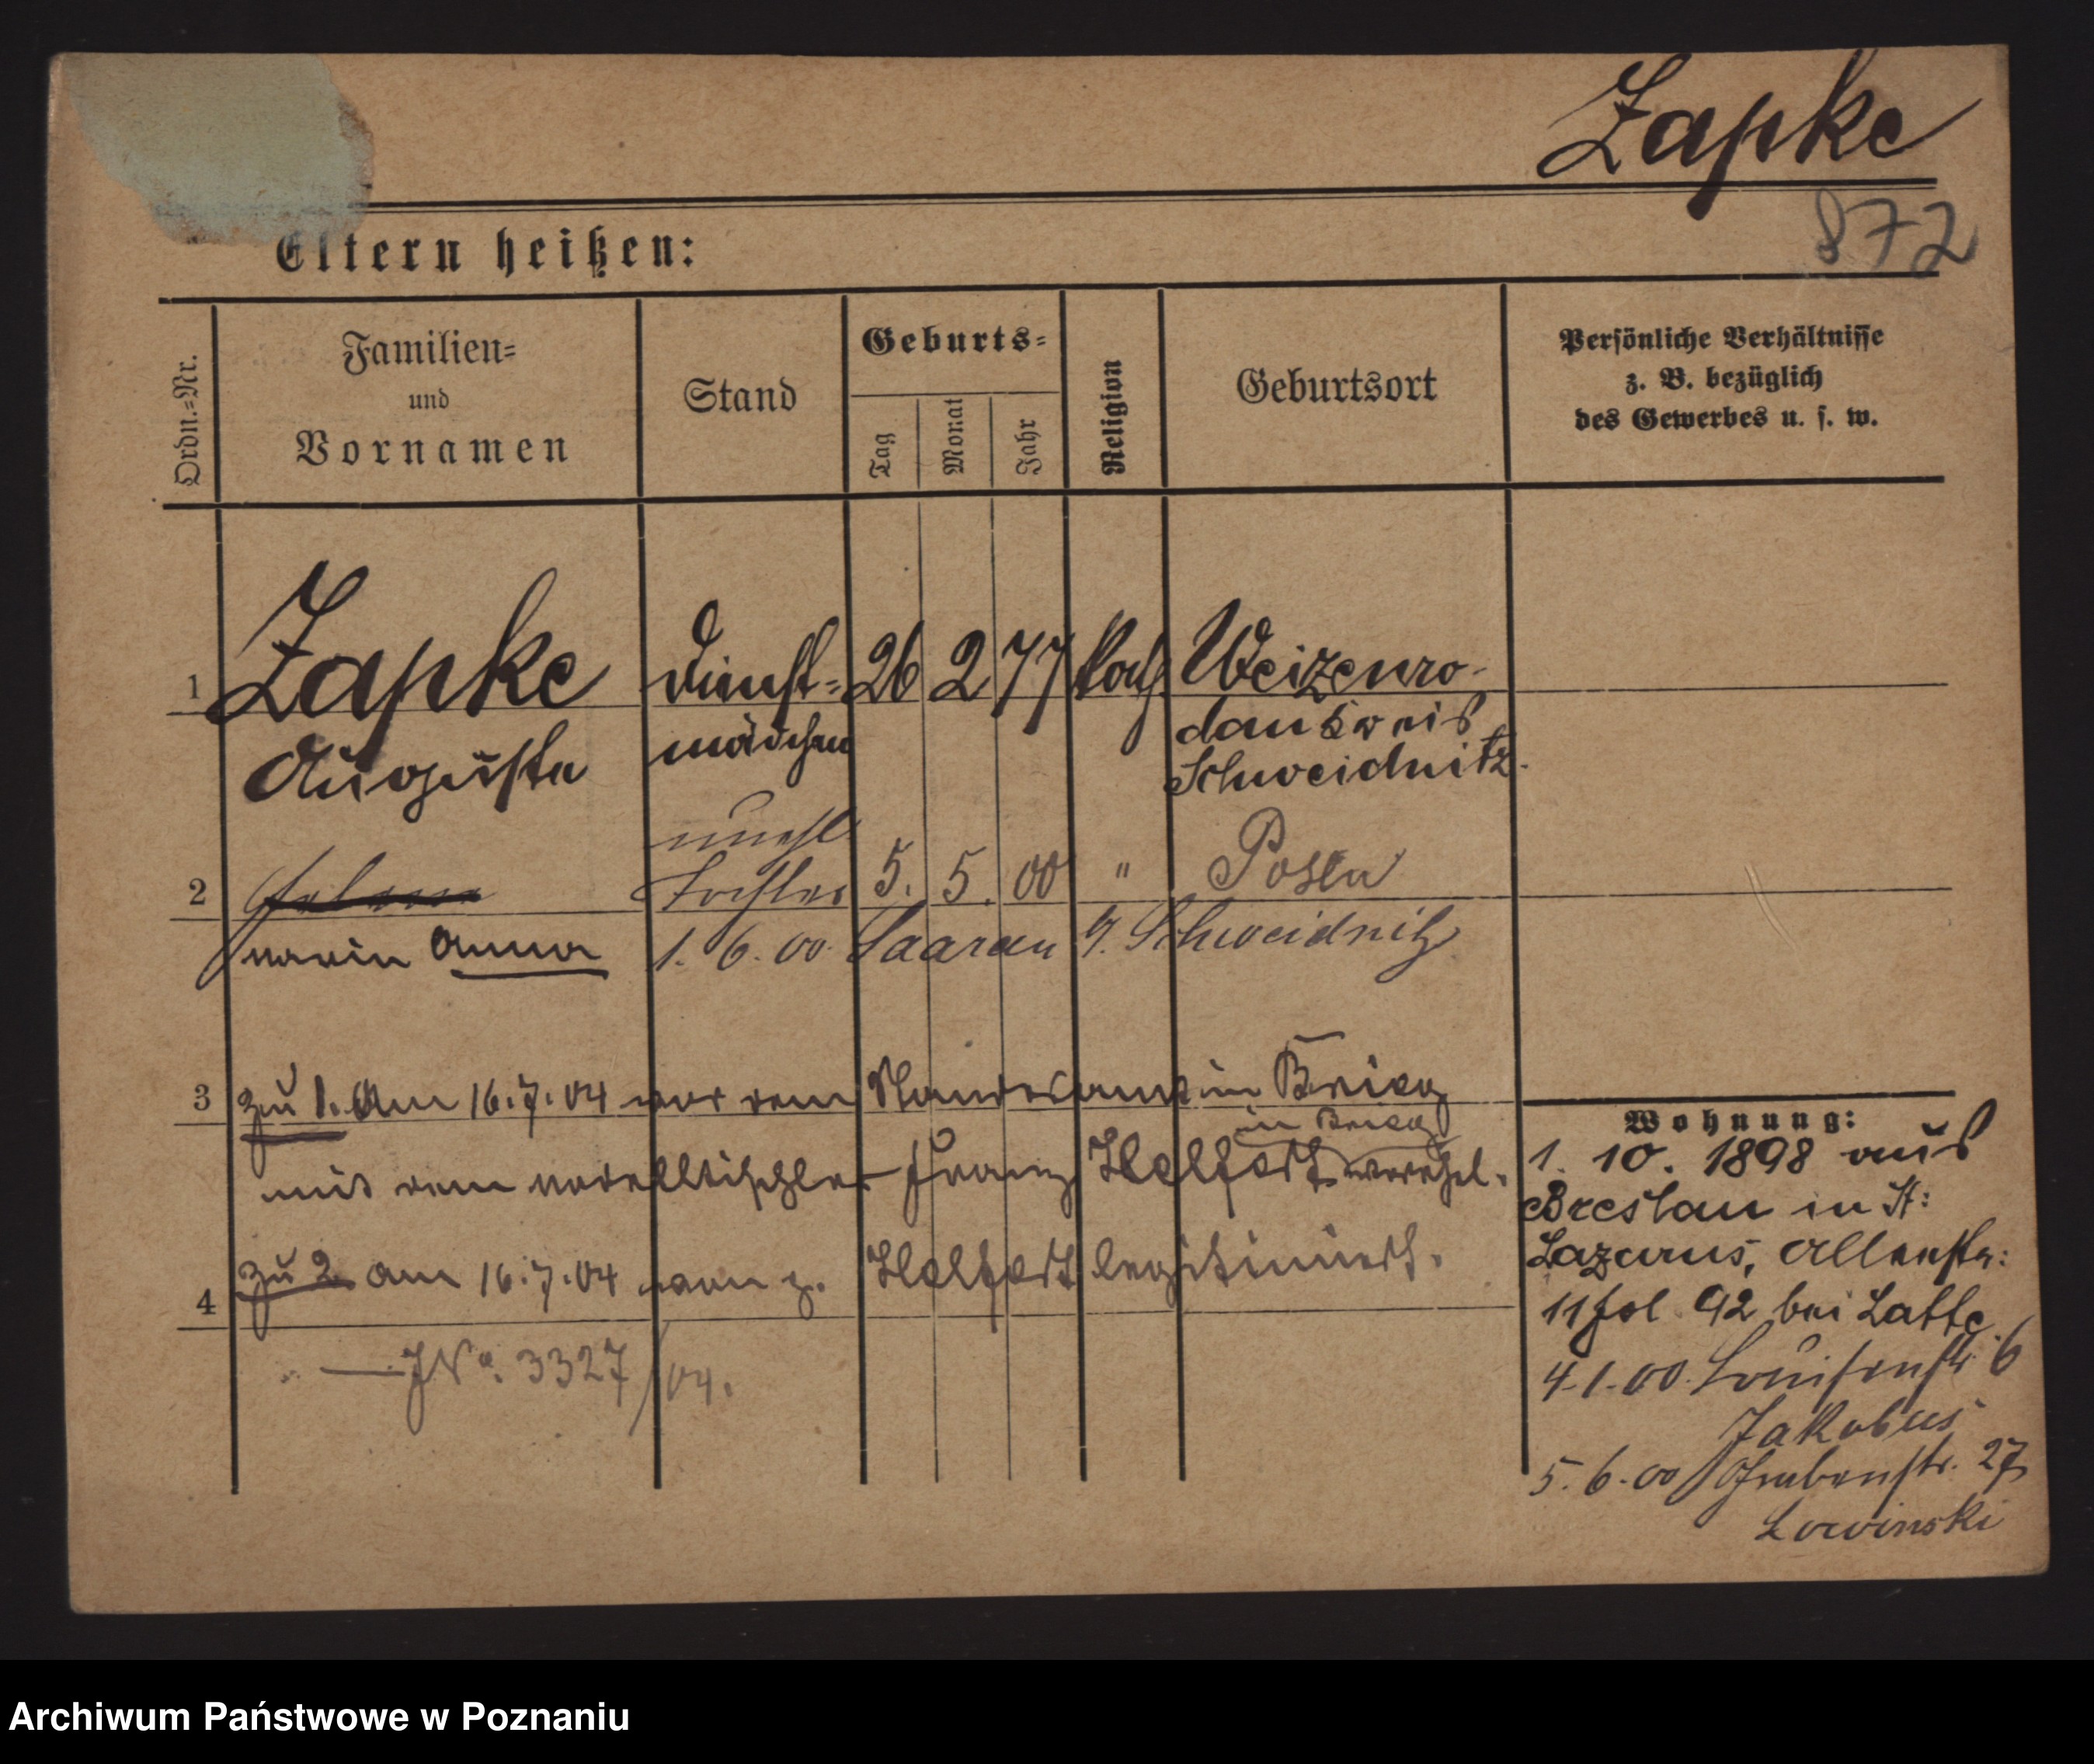 Zapke
872
Eltern heißen:
Ordn.=Nr.
Familien=
und
Vornamen
Stand
Geburts=
Tag
Monat
Jahr
Religion
Geburtsort
Persönliche Verhältnisse
z. B. bezüglich
des Gewerbes u. s. w.
1 Zapke Dienst= 26 2 77 kath Weizenro-
Augusta mädchen dau Kreis
Schweidnitz.
unehl
2 Tochter 5. 5. 00 " Posen
Maria Anna 1. 6. 00. Saarau Schweidnitz
3 zu 1. Am 16.7.04 vor dem Standesamt in Brieg
in Brieg
mit dem Modelltischler Franz Helfert verehel.
4 zu 2 am 16.7.04 von z. Helfert legitimiert.
— JNo. 3327/04.
Wohnung:
1. 10. 1898 aus
Breslau in St:
Lazarus,
11 92 bei Latte
4.1.00. Louisenstr. 6
Jakobus
5.6.00 Grabenstr. 27
Lowinski
Archiwum Państwowe w Poznaniu